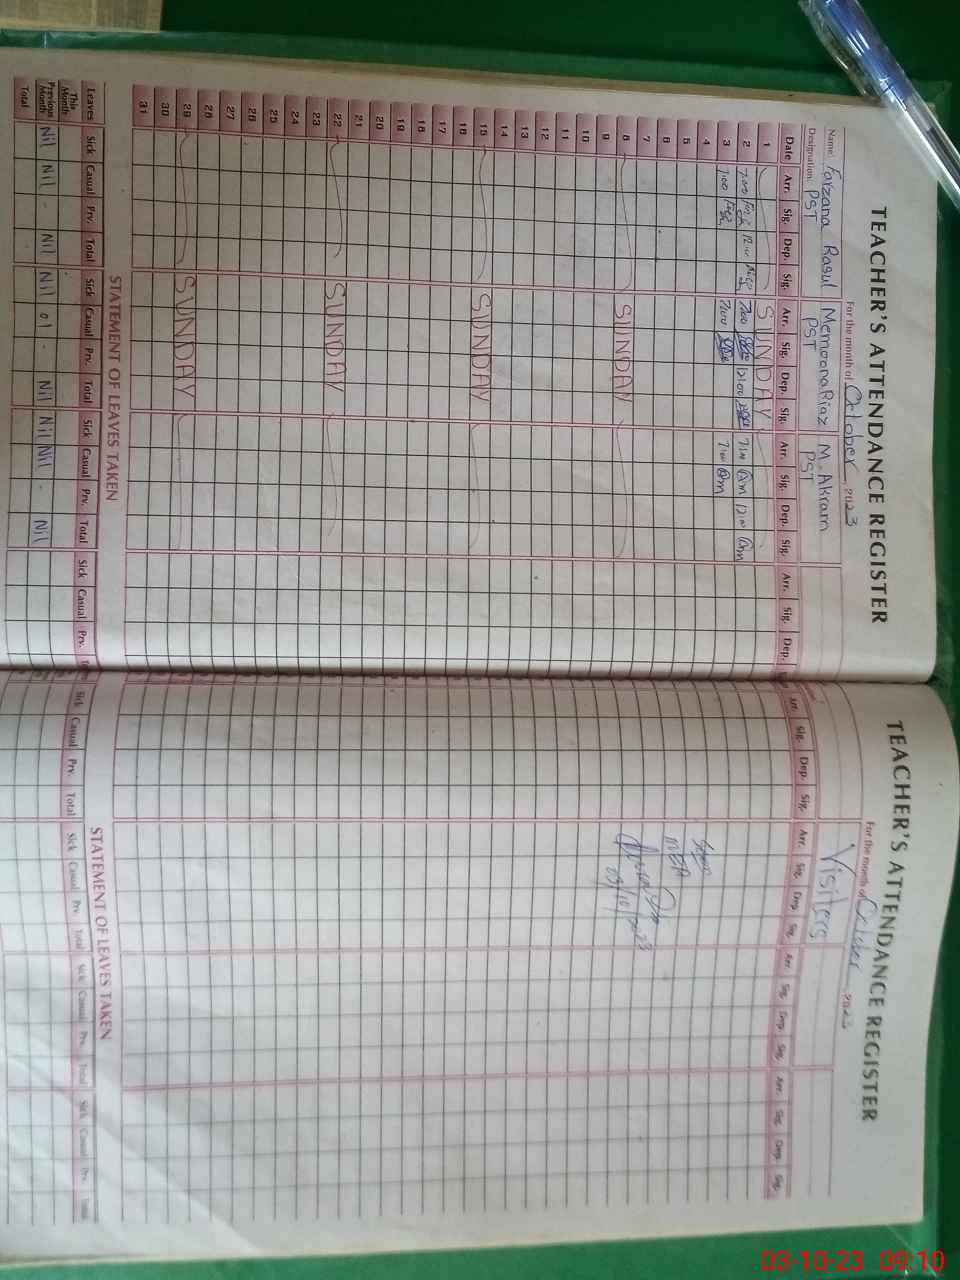 TEACHER'S ATTENDANCE REGISTER
For the month of October 2023
Name: Farzana Rasul Memoona Riaz M. Akram
Designation: PST PST PST
Date Arr. Sig. Dep. Sig. Arr. Sig. Dep. Sig. Arr. Sig. Dep. Sig. Arr. Sig. Dep.
1 SUNDAY
2 7:00 12:00 7:00 12:00 7:00 12:00
3 7:00 7:00 7:00
4
5
6
7
8 SUNDAY
9
10
11
12
13
14
15 SUNDAY
16
17
18
19
20
21
22 SUNDAY
23
24
25
26
27
28
29 SUNDAY
30
31
STATEMENT OF LEAVES TAKEN
Leaves Sick Casual Prv. Total Sick Casual Prv. Total Sick Casual Prv. Total Sick Casual Prv.
This Month
Previous Month Nil Nil - Nil Nil 01 - Nil Nil Nil - Nil
Total
TEACHER'S ATTENDANCE REGISTER
For the month of October 2023
Visiters
Arr. Sig. Dep. Sig. Arr. Sig. Dep. Sig. Arr. Sig. Dep. Sig. Arr. Sig. Dep. Sig.
MEA
03/10/2023
STATEMENT OF LEAVES TAKEN
Sick Casual Prv. Total Sick Casual Prv. Total Sick Casual Prv. Total Sick Casual Prv. Total
03-10-23 09:10